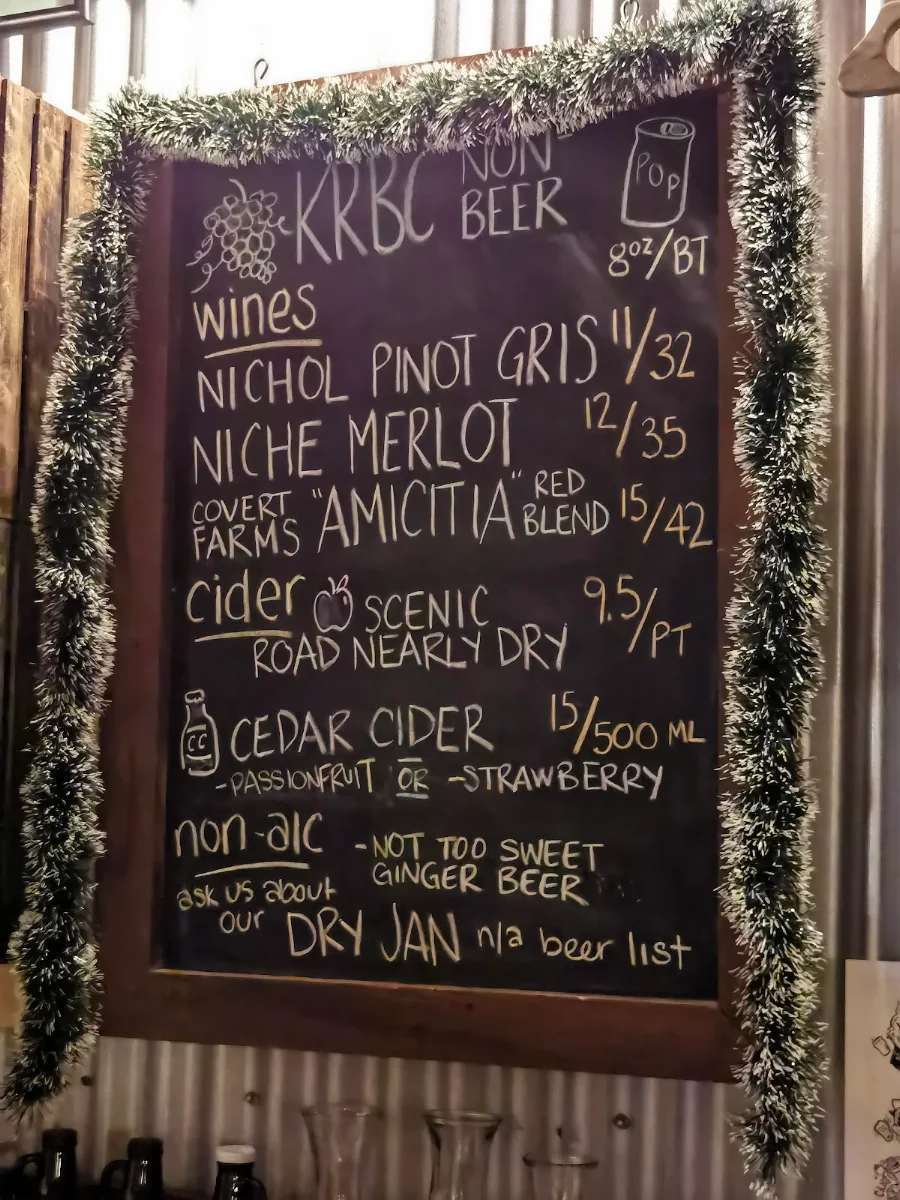 KRBC NON-BEER
POP
8oz/BT
wines
NICHOL PINOT GRIS 11/32
NICHE MERLOT 12/35
COVERT FARMS "AMICITIA" RED BLEND 15/42
cider SCENIC 9.5/PT
ROAD NEARLY DRY
CC CEDAR CIDER 15/500 ML
-PASSIONFRUIT OR -STRAWBERRY
non-alc -NOT TOO SWEET
GINGER BEER
ask us about
our DRY JAN n/a beer list